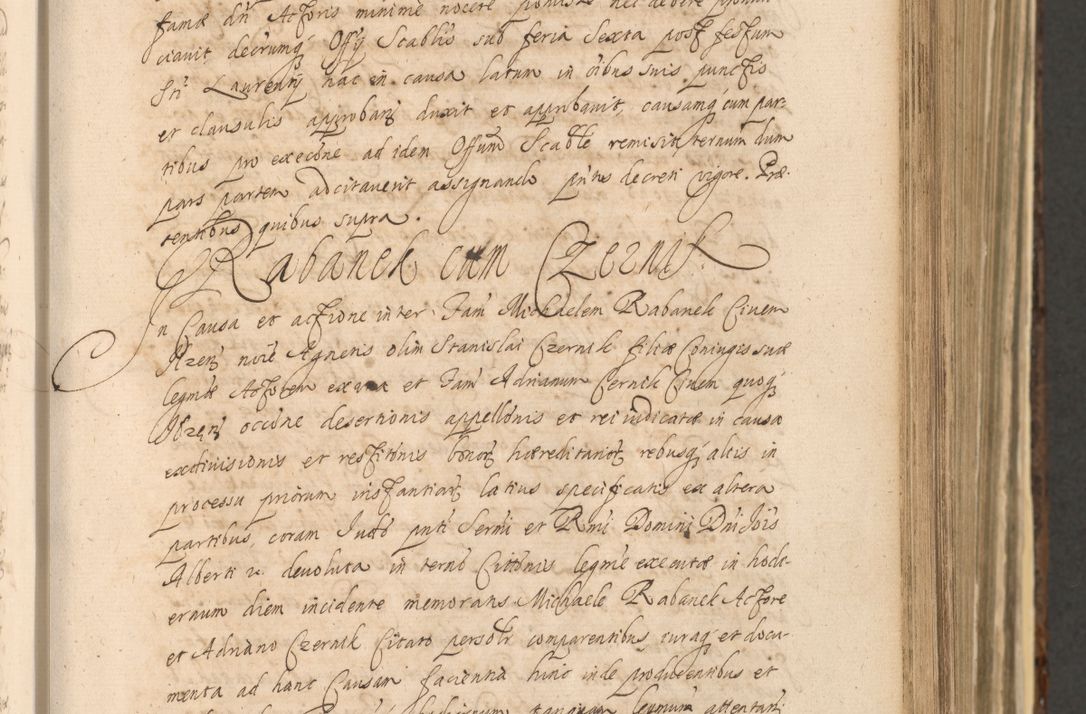 famæ dñ Actoris minime nocere potuisse nec debere
ciavit decrumq́ Offÿ Scablis sub feria Sexta post festum
Sti Laurentÿ hac in causa latum in oībus suis punctis
et clausulis approbanḑ duxit et approbavit, causamq́ cum par-
tibus pro execōne ad idem Offum Scable remisit, terminum dum
pars partem adcitaverit assignando pntis decreti vigore. Præ-
sentibus quibus supra.
Rabanek cum Czernik
In Causa et actione inter Fam Michaelem Rabanek Civem
noīe Agnetis olim Stanislai Czernik filiæ Coniugis suæ
legmæ Actorem ex una et Fam Adrianum Czernik Civem quoq́
occōne desertionis appellōnis et rei iudicatæ in causa
exdivisionis et restitōnis bonorꝫ hæreditariorꝫ rebusq́ aliis in
processu priorum instantiarꝫ latius specificatis ex altera
partibus, coram Judō pnti Sermi et Rmi Domini Dni Jōis
Alberti ꝛc. devoluta in termō Citōnis legmē executæ in hodi-
ernum diem incidente memoratis Michaele Rabanek Actore
et Adriano Czernik Citato persolr comparentibus iuraq́ et docu-
menta ad hanc Causam facientia hinc inde producentibus et